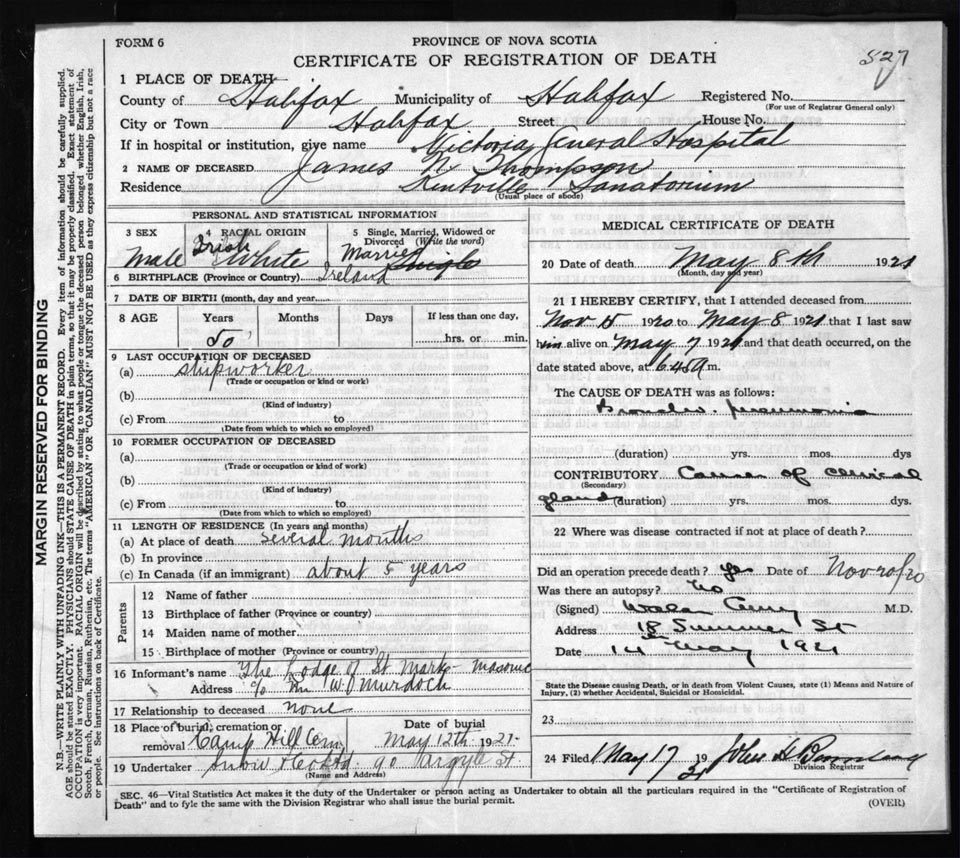 FORM 6
PROVINCE OF NOVA SCOTIA
CERTIFICATE OF REGISTRATION OF DEATH
827
1 PLACE OF DEATH
County of Halifax Municipality of Halifax Registered No.
(For use of Registrar General only)
City or Town Halifax Street House No.
If in hospital or institution, give name Victoria General Hospital
2 NAME OF DECEASED James N. Thompson
Residence Kentville Sanatorium
(Usual place of abode)
PERSONAL AND STATISTICAL INFORMATION
3 SEX 4 RACIAL ORIGIN 5 Single, Married, Widowed or Divorced (Write the word)
Male Irish White Married Single
6 BIRTHPLACE (Province or Country) Ireland
7 DATE OF BIRTH (month, day and year)
8 AGE Years Months Days If less than one day,
50 hrs. or min.
9 LAST OCCUPATION OF DECEASED
(a) shipworker
(Trade or occupation or kind or work)
(b)
(Kind of industry)
(c) From to
(Date from which to which so employed)
10 FORMER OCCUPATION OF DECEASED
(a)
(Trade or occupation or kind of work)
(b)
(Kind of industry)
(c) From to
(Date from which to which so employed)
11 LENGTH OF RESIDENCE (In years and months)
(a) At place of death several months
(b) In province
(c) In Canada (if an immigrant) about 5 years
Parents
12 Name of father
13 Birthplace of father (Province or country)
14 Maiden name of mother
15 Birthplace of mother (Province or country)
16 Informant's name The Lodge of St Mark - masonic
Address c/o Mr W J Murdoch
17 Relationship to deceased none
18 Place of burial, cremation or removal Camp Hill Cem Date of burial May 12th 1921
19 Undertaker Snow & Co Ltd 90 Argyle St
(Name and Address)
MEDICAL CERTIFICATE OF DEATH
20 Date of death May 8th 1921
(Month, day and year)
21 I HEREBY CERTIFY, that I attended deceased from
Nov 15 1920 to May 8 1921 that I last saw
him alive on May 7 1921 and that death occurred, on the
date stated above, at 6.45 A m.
The CAUSE OF DEATH was as follows:
Broncho. pneumonia
(duration) yrs. mos. dys
CONTRIBUTORY Cancer of cervical
(Secondary)
glands (duration) yrs. mos. dys.
22 Where was disease contracted if not at place of death?
Did an operation precede death? Yes Date of Nov 20/20
Was there an autopsy? No
(Signed) M.D.
Address 18 Summer St
Date 14th May 1921
State the Disease causing Death, or in death from Violent Causes, state (1) Means and Nature of
Injury, (2) whether Accidental, Suicidal or Homicidal.
23
24 Filed May 17 1921 John H
Division Registrar
SEC. 46—Vital Statistics Act makes it the duty of the Undertaker or person acting as Undertaker to obtain all the particulars required in the "Certificate of Registration of
Death" and to fyle the same with the Division Registrar who shall issue the burial permit.
(OVER)
MARGIN RESERVED FOR BINDING
N.B.—WRITE PLAINLY WITH UNFADING INK—THIS IS A PERMANENT RECORD. Every item of information should be carefully supplied.
AGE should be stated EXACTLY. PHYSICIANS should STATE CAUSE OF DEATH in plain terms, so that it may be properly classified. Exact statement of
OCCUPATION is very important. RACIAL ORIGIN will be described by stating to what people or tongue the deceased person belonged whether English, Irish,
Scotch, French, German, Russian, Ruthenian, etc. The terms "AMERICAN" or "CANADIAN" MUST NOT BE USED as they express citizenship but not a race
or people. See instructions on back of Certificate.